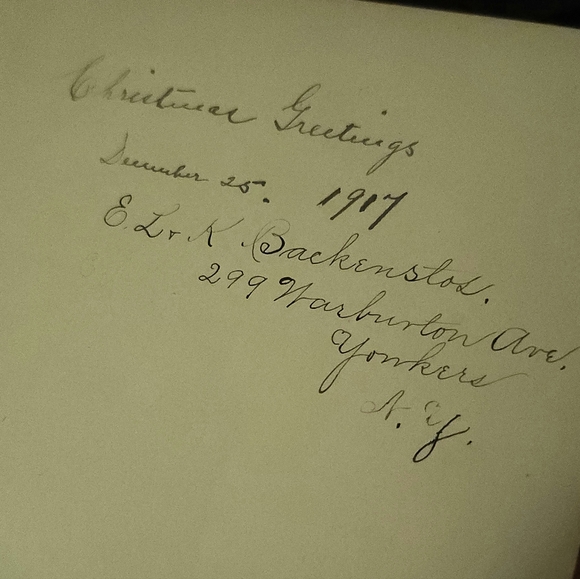 Christmas Greetings
December 25. 1917
E. L & K. Backenstos.
299 Warburton Ave.
Yonkers
N. Y.